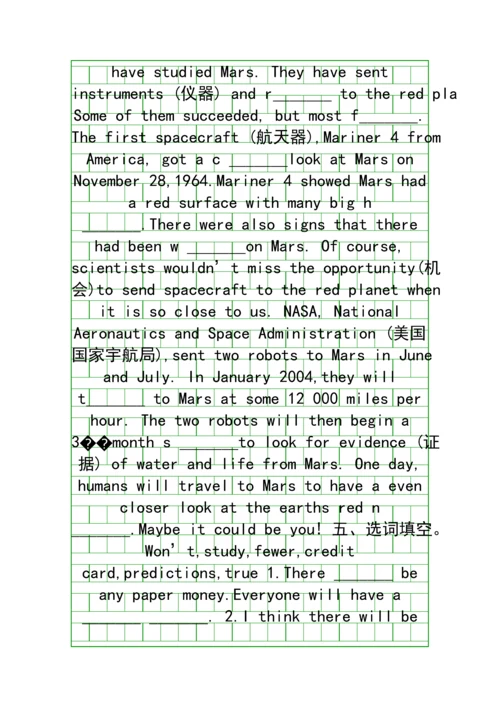 have studied Mars. They have sent
instruments (仪器) and r_______ to the red pla
Some of them succeeded, but most f_______.
The first spacecraft (航天器),Mariner 4 from
America, got a c _______look at Mars on
November 28,1964.Mariner 4 showed Mars had
a red surface with many big h
_______.There were also signs that there
had been w _______on Mars. Of course,
scientists wouldn't miss the opportunity(机
会)to send spacecraft to the red planet when
it is so close to us. NASA, National
Aeronautics and Space Administration (美国
国家宇航局),sent two robots to Mars in June
and July. In January 2004,they will
t_______ to Mars at some 12 000 miles per
hour. The two robots will then begin a
3��month s _______to look for evidence (证
据) of water and life from Mars. One day,
humans will travel to Mars to have a even
closer look at the earths red n
_______.Maybe it could be you! 五、选词填空。
Won't,study,fewer,credit
card,predictions,true 1.There _______ be
any paper money.Everyone will have a
_______ _______. 2.I think there will be